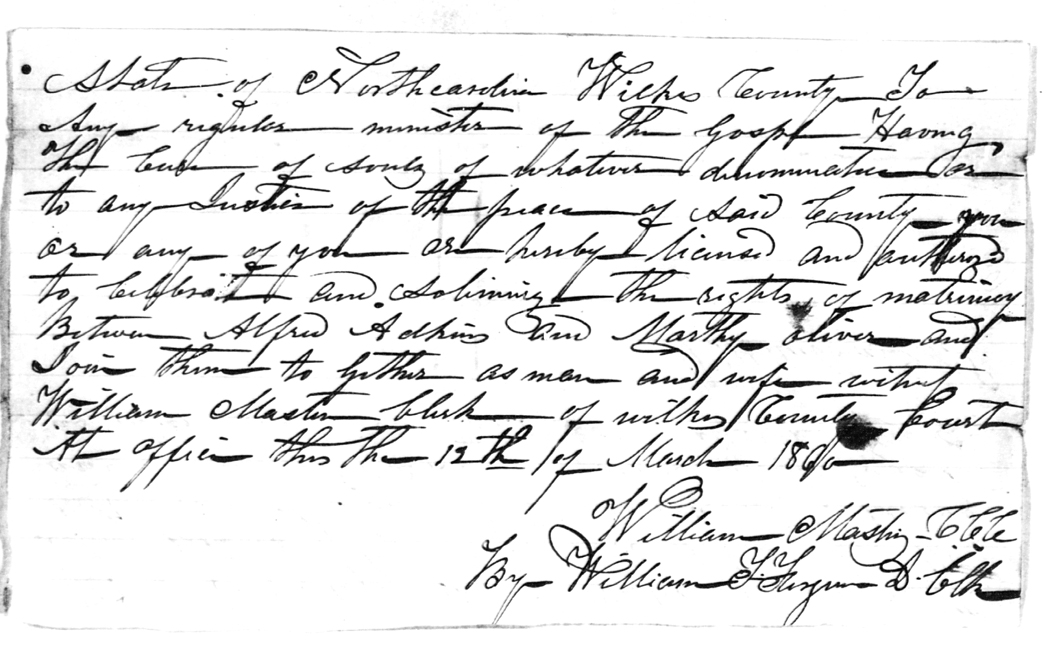 State of Northcarolina Wilkes County To
Any regular minister of the Gospel Having
the Cure of souls of whatever denomination or
to any Justice of the peace of said County you
or any of you ar hereby licensed and authorized
to Celebrate and Solimnize the rights of matrimony
Between Alfred Adkins and Marthy oliver and
Join them to gether as man and wife witness
William Mastin Clerk of wilkes County Court
At office this the 12th of March 1860
William Mastin CCC
By William F. Ferguson D. Clk